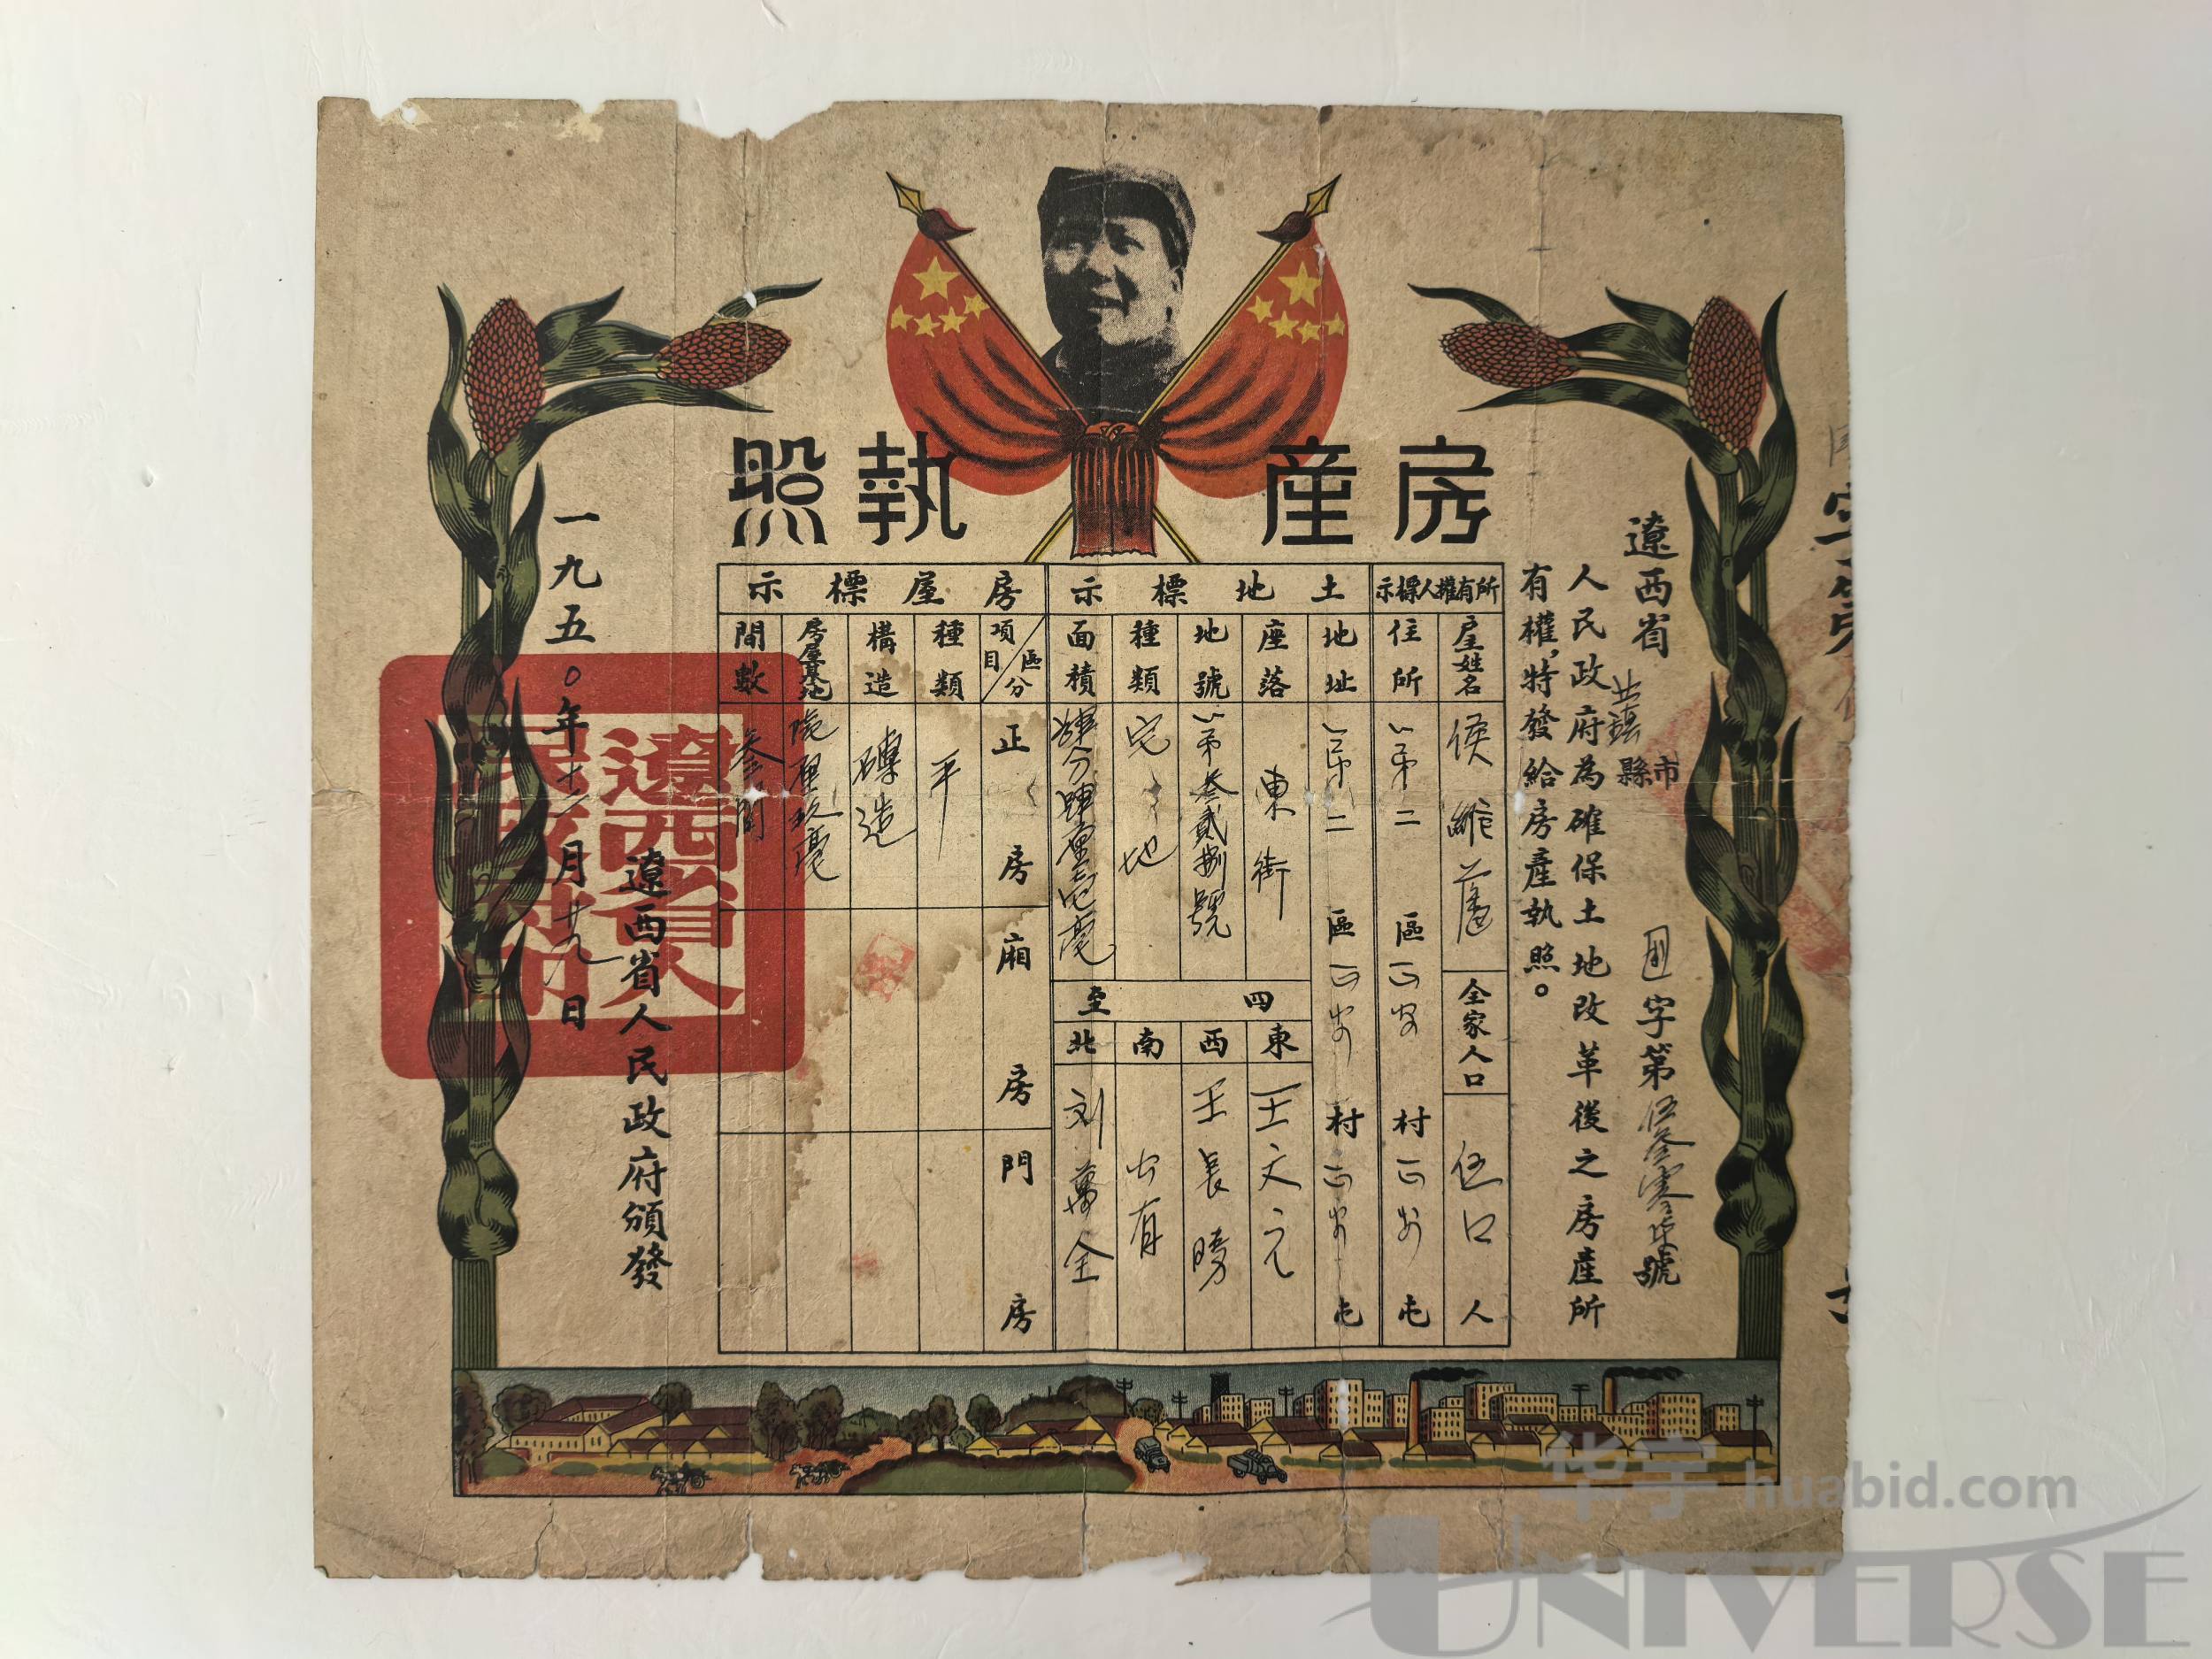 房產執照
遼西省
縣市
字第
號
人民政府為確保土地改革後之房產所
有權，特發給房產執照。
所有權人標示
戶姓名
侯維藩
全家人口
伍口人
住所
第二區
村
屯
土地標示
地址
第二區
村
屯
座落
東街
地號
第叁貳捌號
種類
宅地
面積
四至
東
王文元
西
王長
南
北
刘萬全
房屋標示
項目
區分
正房
廂房
門房
種類
平
構造
磚造
房屋基地
間數
叁間
遼西省人民政府頒發
一九五〇年十二月廿九日
华宇 huabid.com
UNIVERSE